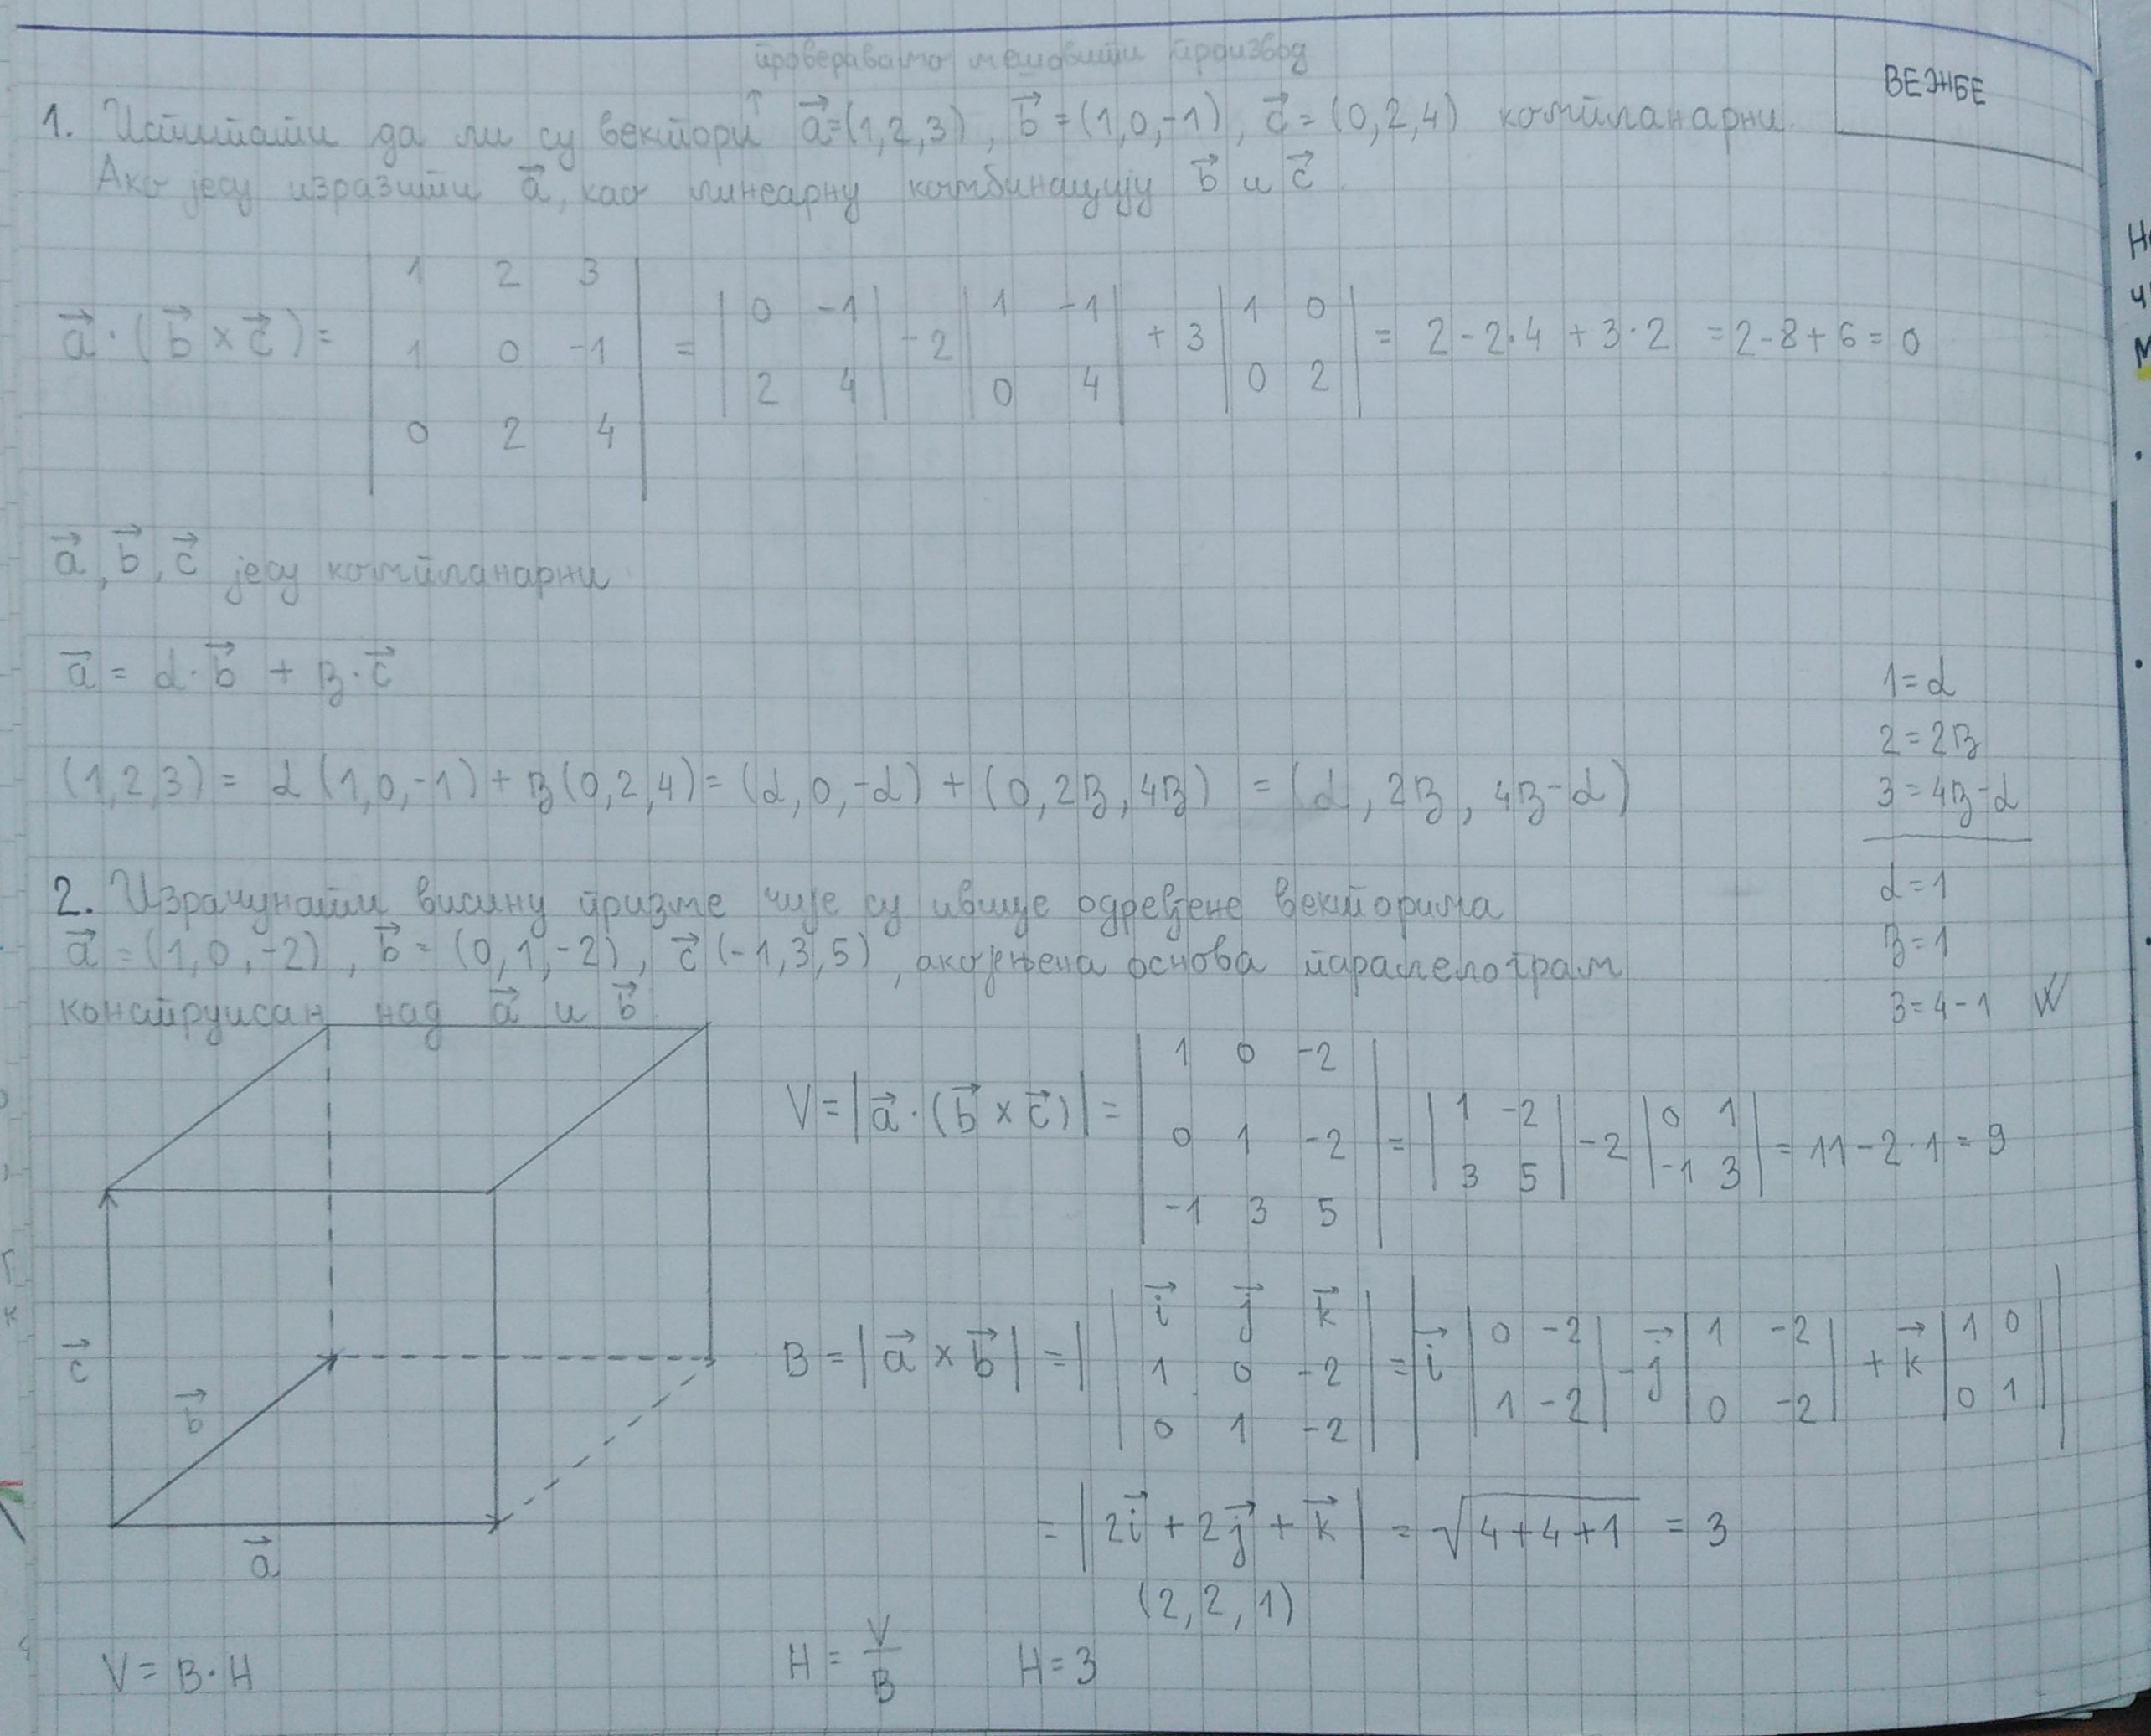 проверавамо мешовити производ
ВЕЖБЕ
1. Испитати да ли су вектори ↑ a⃗=(1,2,3), b⃗=(1,0,-1), c⃗=(0,2,4) компланарни.
Ако јесу изразити a⃗, као линеарну комбинацију b⃗ и c⃗.
a⃗·(b⃗×c⃗) = |1 2 3; 1 0 -1; 0 2 4| = |0 -1; 2 4| - 2 |1 -1; 0 4| + 3 |1 0; 0 2| = 2 - 2·4 + 3·2 = 2-8+6 = 0
a⃗, b⃗, c⃗ јесу компланарни
a⃗ = α·b⃗ + β·c⃗
(1,2,3) = α(1,0,-1) + β(0,2,4) = (α,0,-α) + (0,2β,4β) = (α, 2β, 4β-α)
1=α
2=2β
3=4β-α
α=1
β=1
3=4-1
2. Израчунати висину призме чије су ивице одређене векторима
a⃗ = (1,0,-2), b⃗ = (0,1,-2), c⃗ (-1,3,5), ако јењена основа паралелограм
конструисан над a⃗ и b⃗.
c⃗
b⃗
a⃗
V = |a⃗·(b⃗×c⃗)| = |1 0 -2; 0 1 -2; -1 3 5| = |1 -2; 3 5| - 2 |0 1; -1 3| = 11-2·1 = 9
B = |a⃗×b⃗| = | |i⃗ j⃗ k⃗; 1 0 -2; 0 1 -2| = |i⃗ |0 -2; 1 -2| - j⃗ |1 -2; 0 -2| + k⃗ |1 0; 0 1| |
= |2i⃗ + 2j⃗ + k⃗| = √4+4+1 = 3
(2,2,1)
V = B·H
H = V/B
H = 3